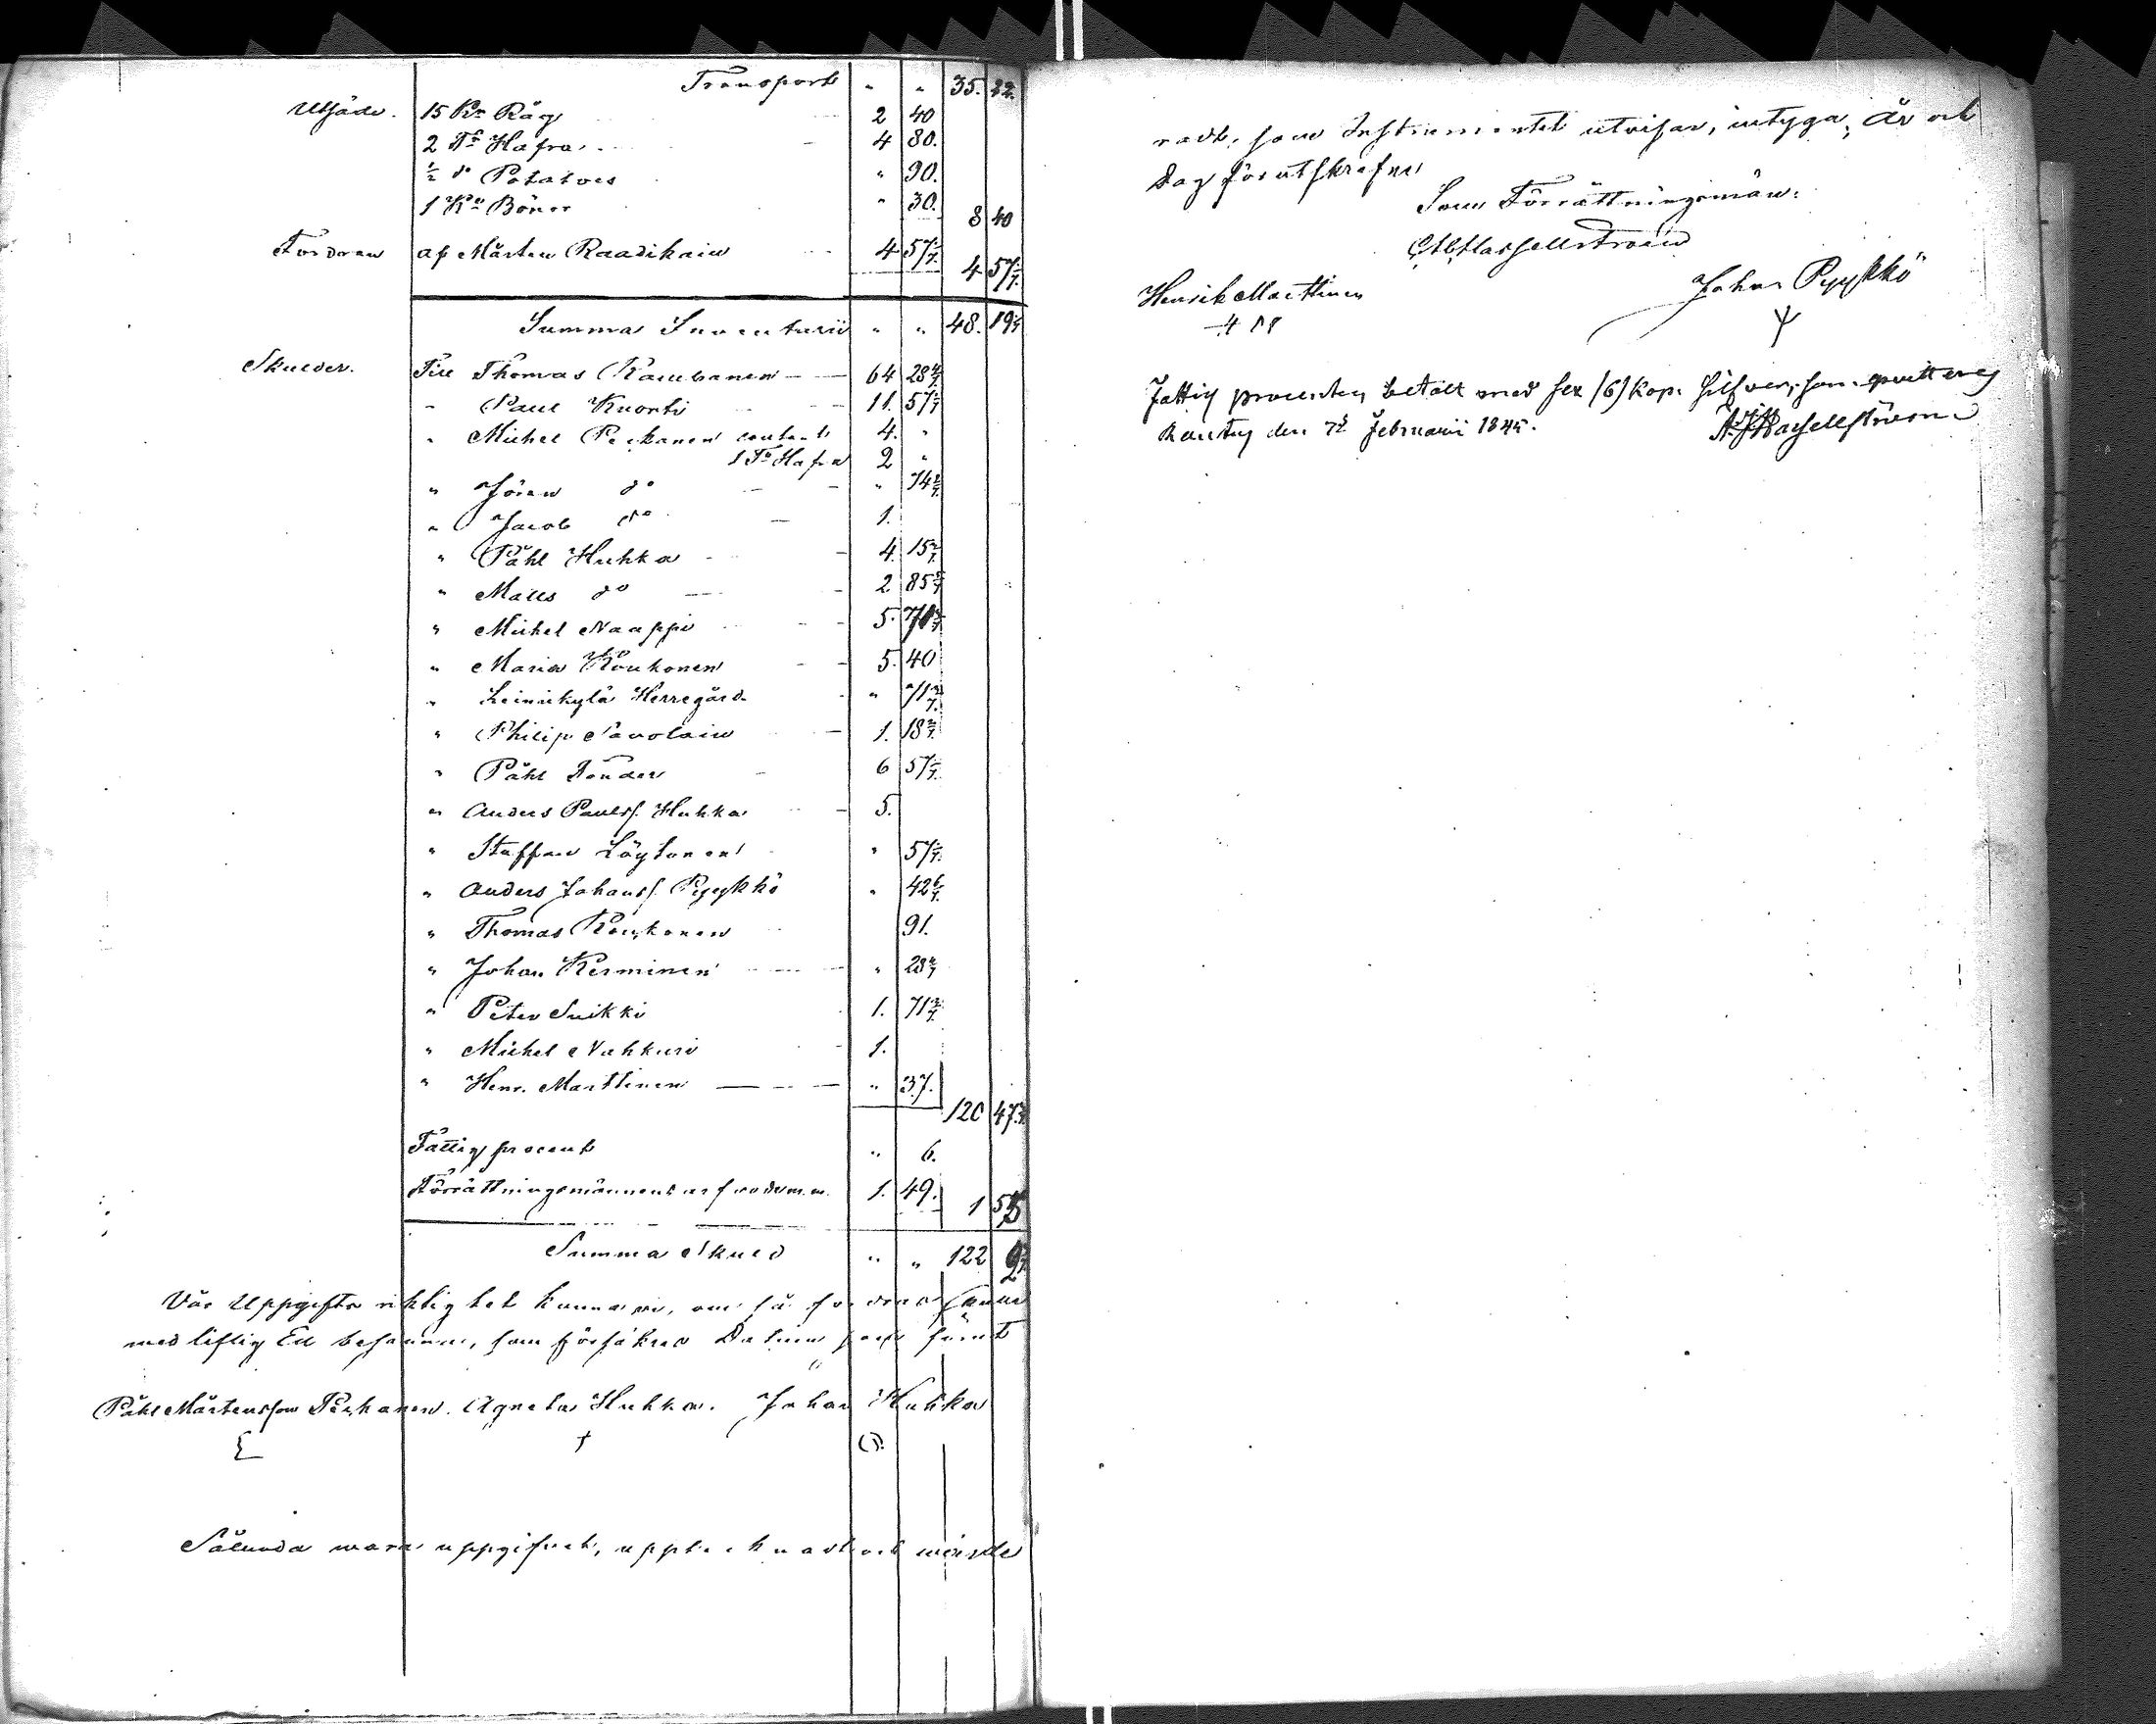 Transport " " 35. 22.
Utsäde. 15 Kr Råg 2 40
2 Tr Hafra 4 80.
½ do Potatoes " 90.
1 Kr Bönor " 30. 8 40
Fordran af Mårten Raadikain 4 57 1/7. 4 57 1/7.
Summa Inventarii " " 48. 19 1/7
Skulder. Till Thomas 64 28 4/7.
" Paul Knorti 11. 57 1/7
" Michel Peckanen contant 4. "
1 Tr Hafra 2 "
" Jöran do " 74 2/7.
" Jacob do 1.
" Påhl Huhka 4. 15 2/7.
" Matts do 2 85 5/7
" Michel Naappi 5.
" Maria Koukonen 5. 40
" Leinikylä Herregård " 71 3/7.
" Philip Savolain 1. 18 2/7.
" Påhl 6 57 1/7.
" Anders Paulss. Huhka 5.
" Staffan Löytonen " 57 1/7.
" Anders Johanss. Pyykkö " 42 6/7.
" Thomas Koukonen 91.
" Johan Kerminen " 28 4/7
" Peter Suikki 1. 71 3/7.
" Michel Nahkuri 1.
" Henr. Marttinen " 37.
120 47
Fattig procent " 6.
Förrättningsmännens arfvode m.m. 1. 49. 1 55
Summa Skuld " " 122
Vår Uppgifts riktighet kunna vi, om så fordras
med liflig Ed besanna, som försäkras Datum som förut
Påhl Mårtensson Peckanen. Agneta Huhka. Johan Huhka
Sålunda vara uppgifvet, upptecknadt och värde
radt, som Instrumentet utvisar, intyga, År och
Dag förutskrefne
Som Förrättningsmän:
Hasselström
Henrik Marttinen Johan Pyykkö
Fattig procenten betalt med sex /6/ Kop. Silfver, som qvitteras
den 7de Februarii 1845.
Hasselström